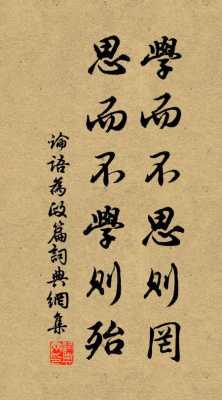 學而不思則罔
思而不學則殆
论语為政篇詞典網集